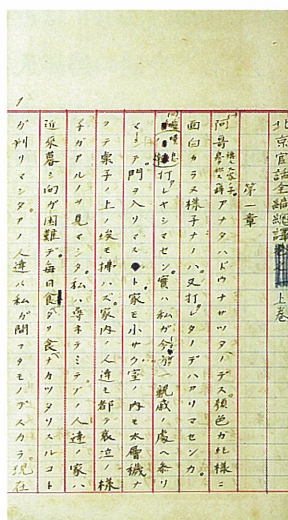 北京官話全編総譯 上巻
第一章
阿哥アナタハドウナサツタノデス顔色ガ此様ニ
面白カラヌ様子ナノハ。又打レタノデハアリマセンカ。
打レヤシマセン。實ハ私ガ今
マシテ。門ヲ入リマスト家モ小サク室内モ太層穢ナ
クテ案子ノ上ノ埃モ掃ハズ。家内ノ人達モ都テ哀泣ノ様
子ガアルノヲ見マシタ。私ハ尋ネテミテ ノ人達ノ家ハ
近来暮シ向ガ困難デ。毎日食タリ食ナカツタリスルコト
ガ判リマシタ。アノ人達ハ私ガ問フタモノデスカラ。現在